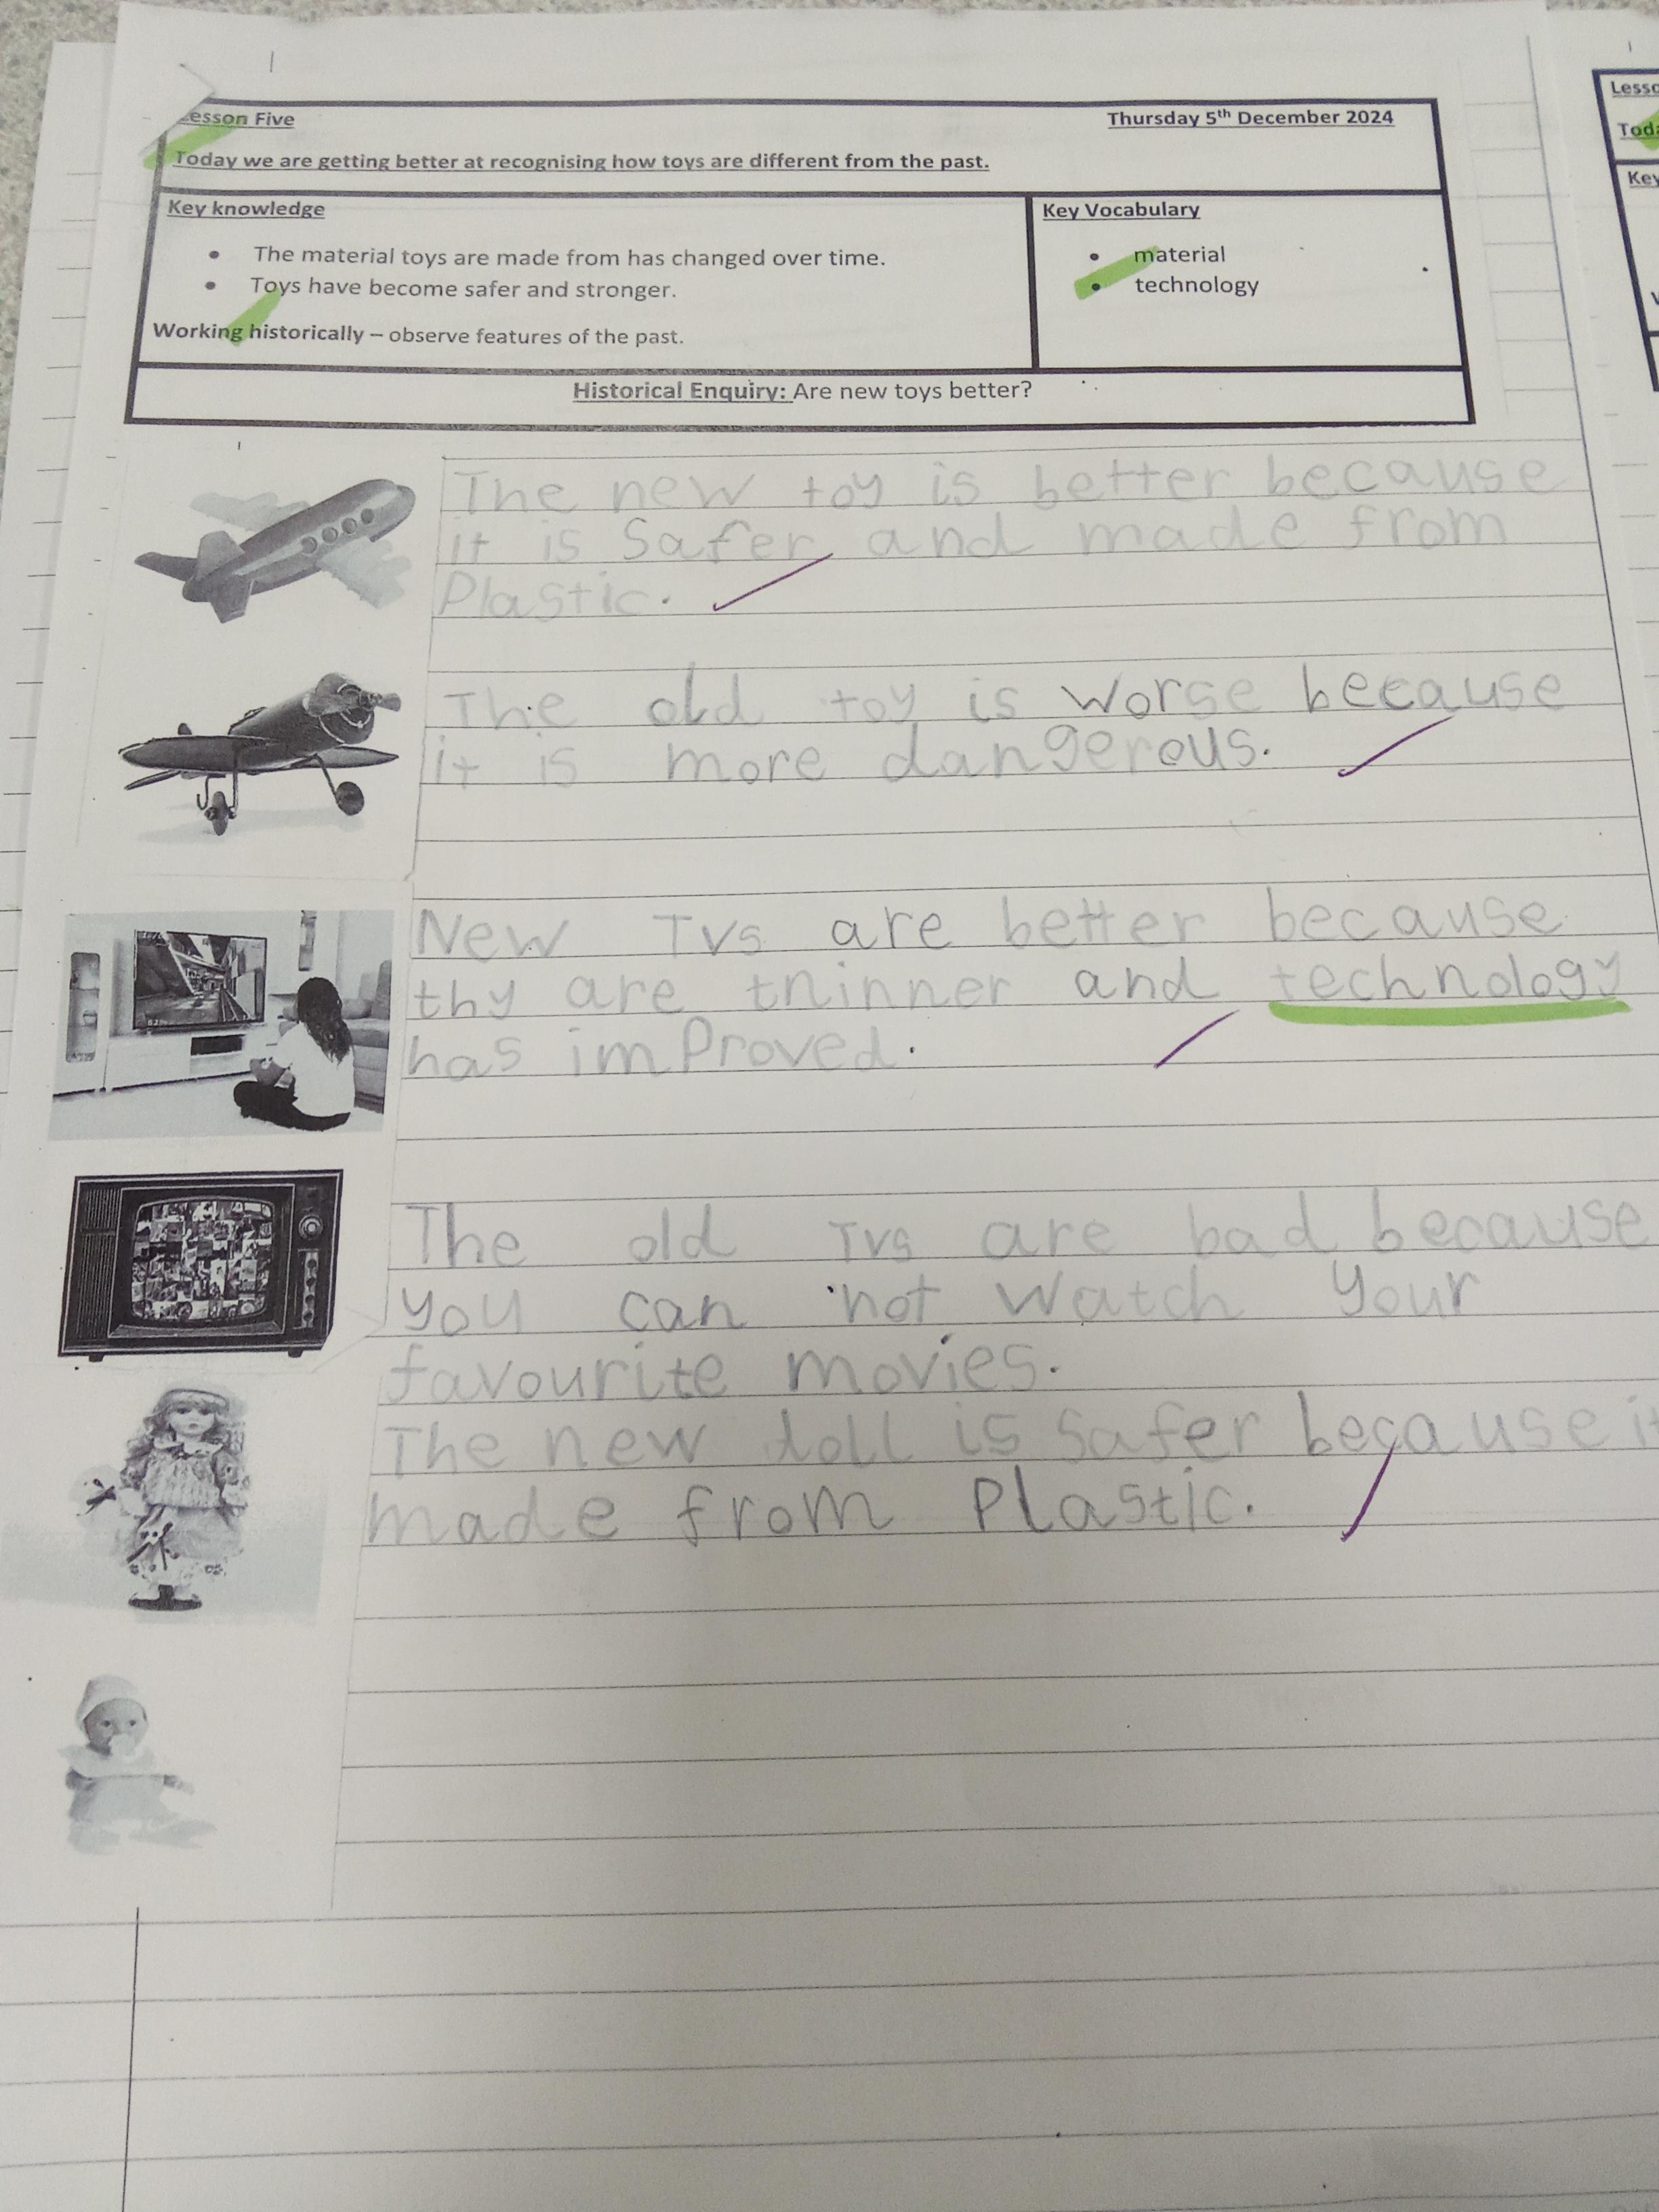 Lesson Five
Thursday 5th December 2024
Today we are getting better at recognising how toys are different from the past.
Key knowledge
• The material toys are made from has changed over time.
• Toys have become safer and stronger.
Working historically – observe features of the past.
Key Vocabulary
• material
• technology
Historical Enquiry: Are new toys better?
The new toy is better because
it is Safer and made from
Plastic.
The old toy is worse because
it is more dangerous.
New Tvs are better because
thy are thinner and technology
has imProved.
The old Tvs are bad because
you can not watch your
favourite movies.
The new doll is Safer because it
made from Plastic.
Lesso
Toda
Key